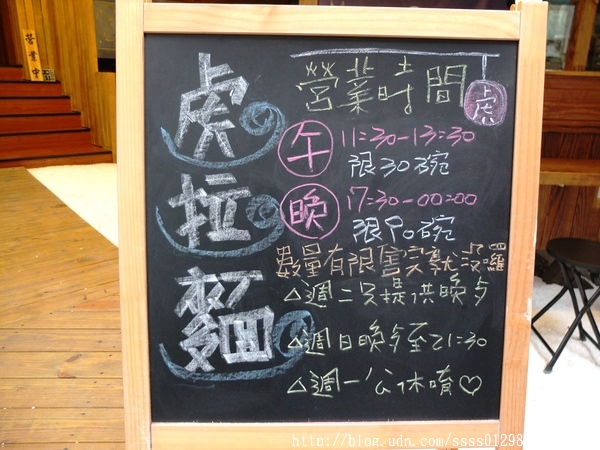 營業中
虎拉麵
營業時間
虎
午 11:30-13:30
限30碗
晚 17:30-00:00
限90碗
數量有限售完就沒囉
△週二只提供晚夕
△週日晚夕至21:30
△週一公休唷♡
http://blog.udn.com/ssss01298